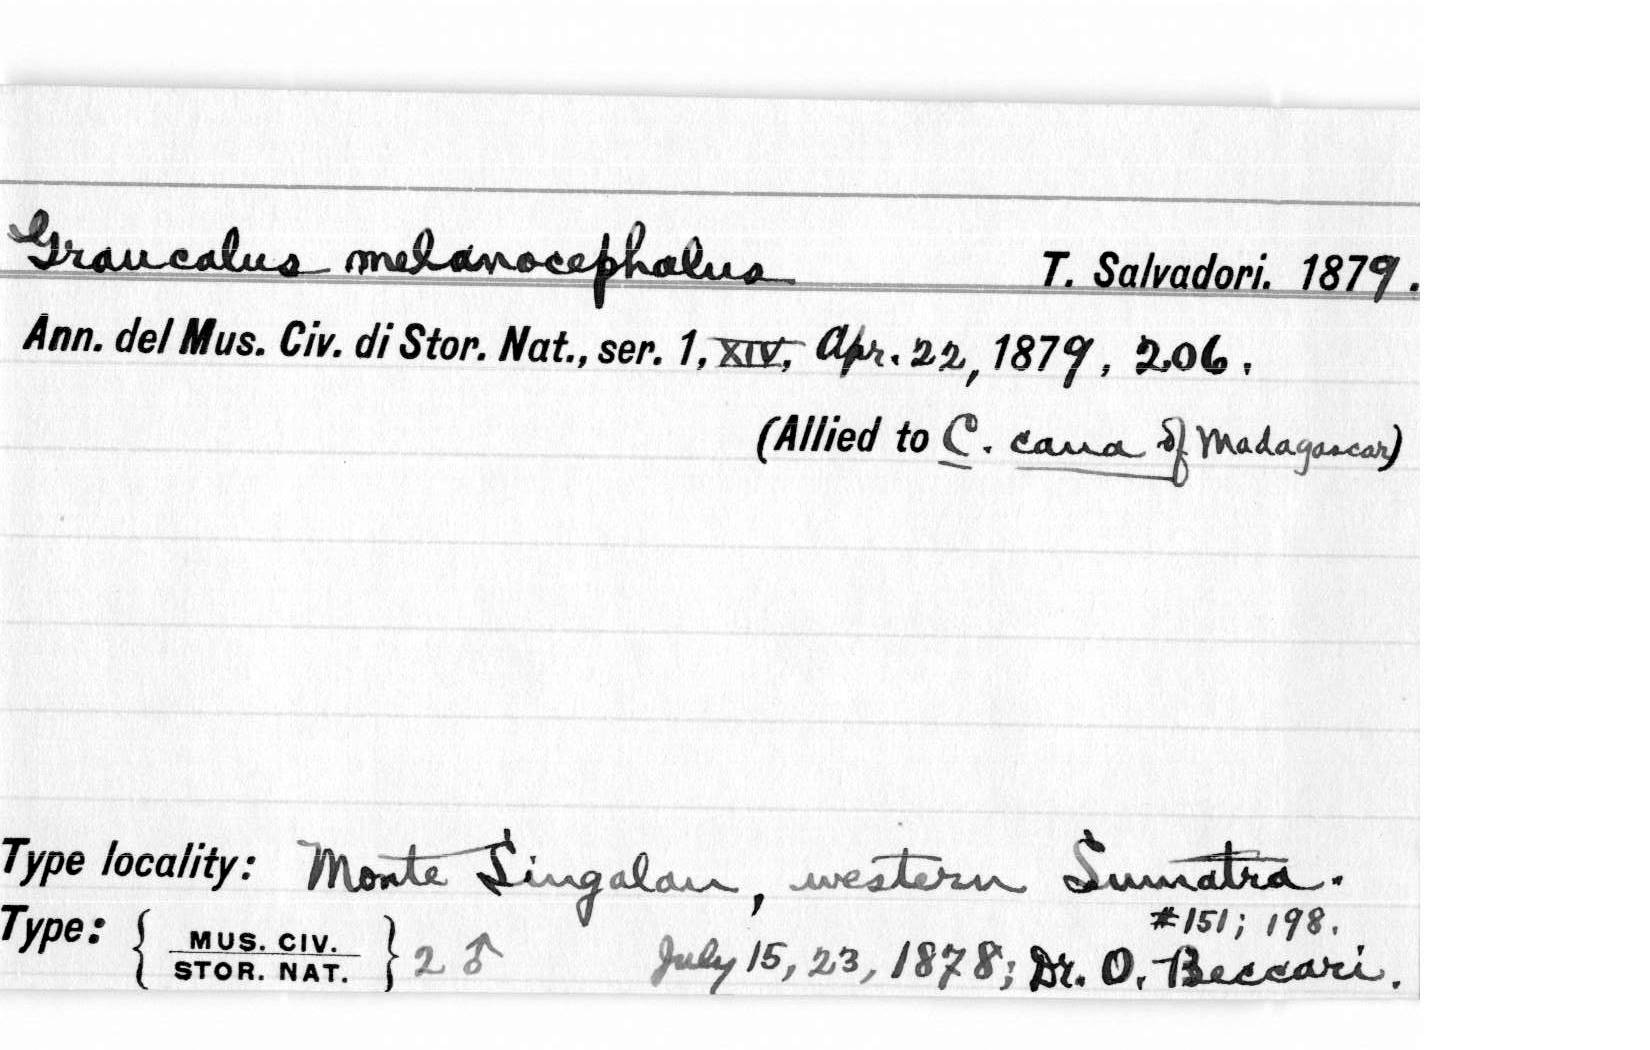 Graucalus melanocephalus T. Salvadori. 1879.
Ann. del Mus. Civ. di Stor. Nat., ser. 1, XIV, Apr. 22, 1879, 206.
(Allied to C. cana of Madagascar)
Type locality: Monte Singalan, western Sumatra.
#151; 198.
Type: { MUS. CIV. STOR. NAT. } 2 ♂ July 15, 23, 1878; Dr. O. Beccari.